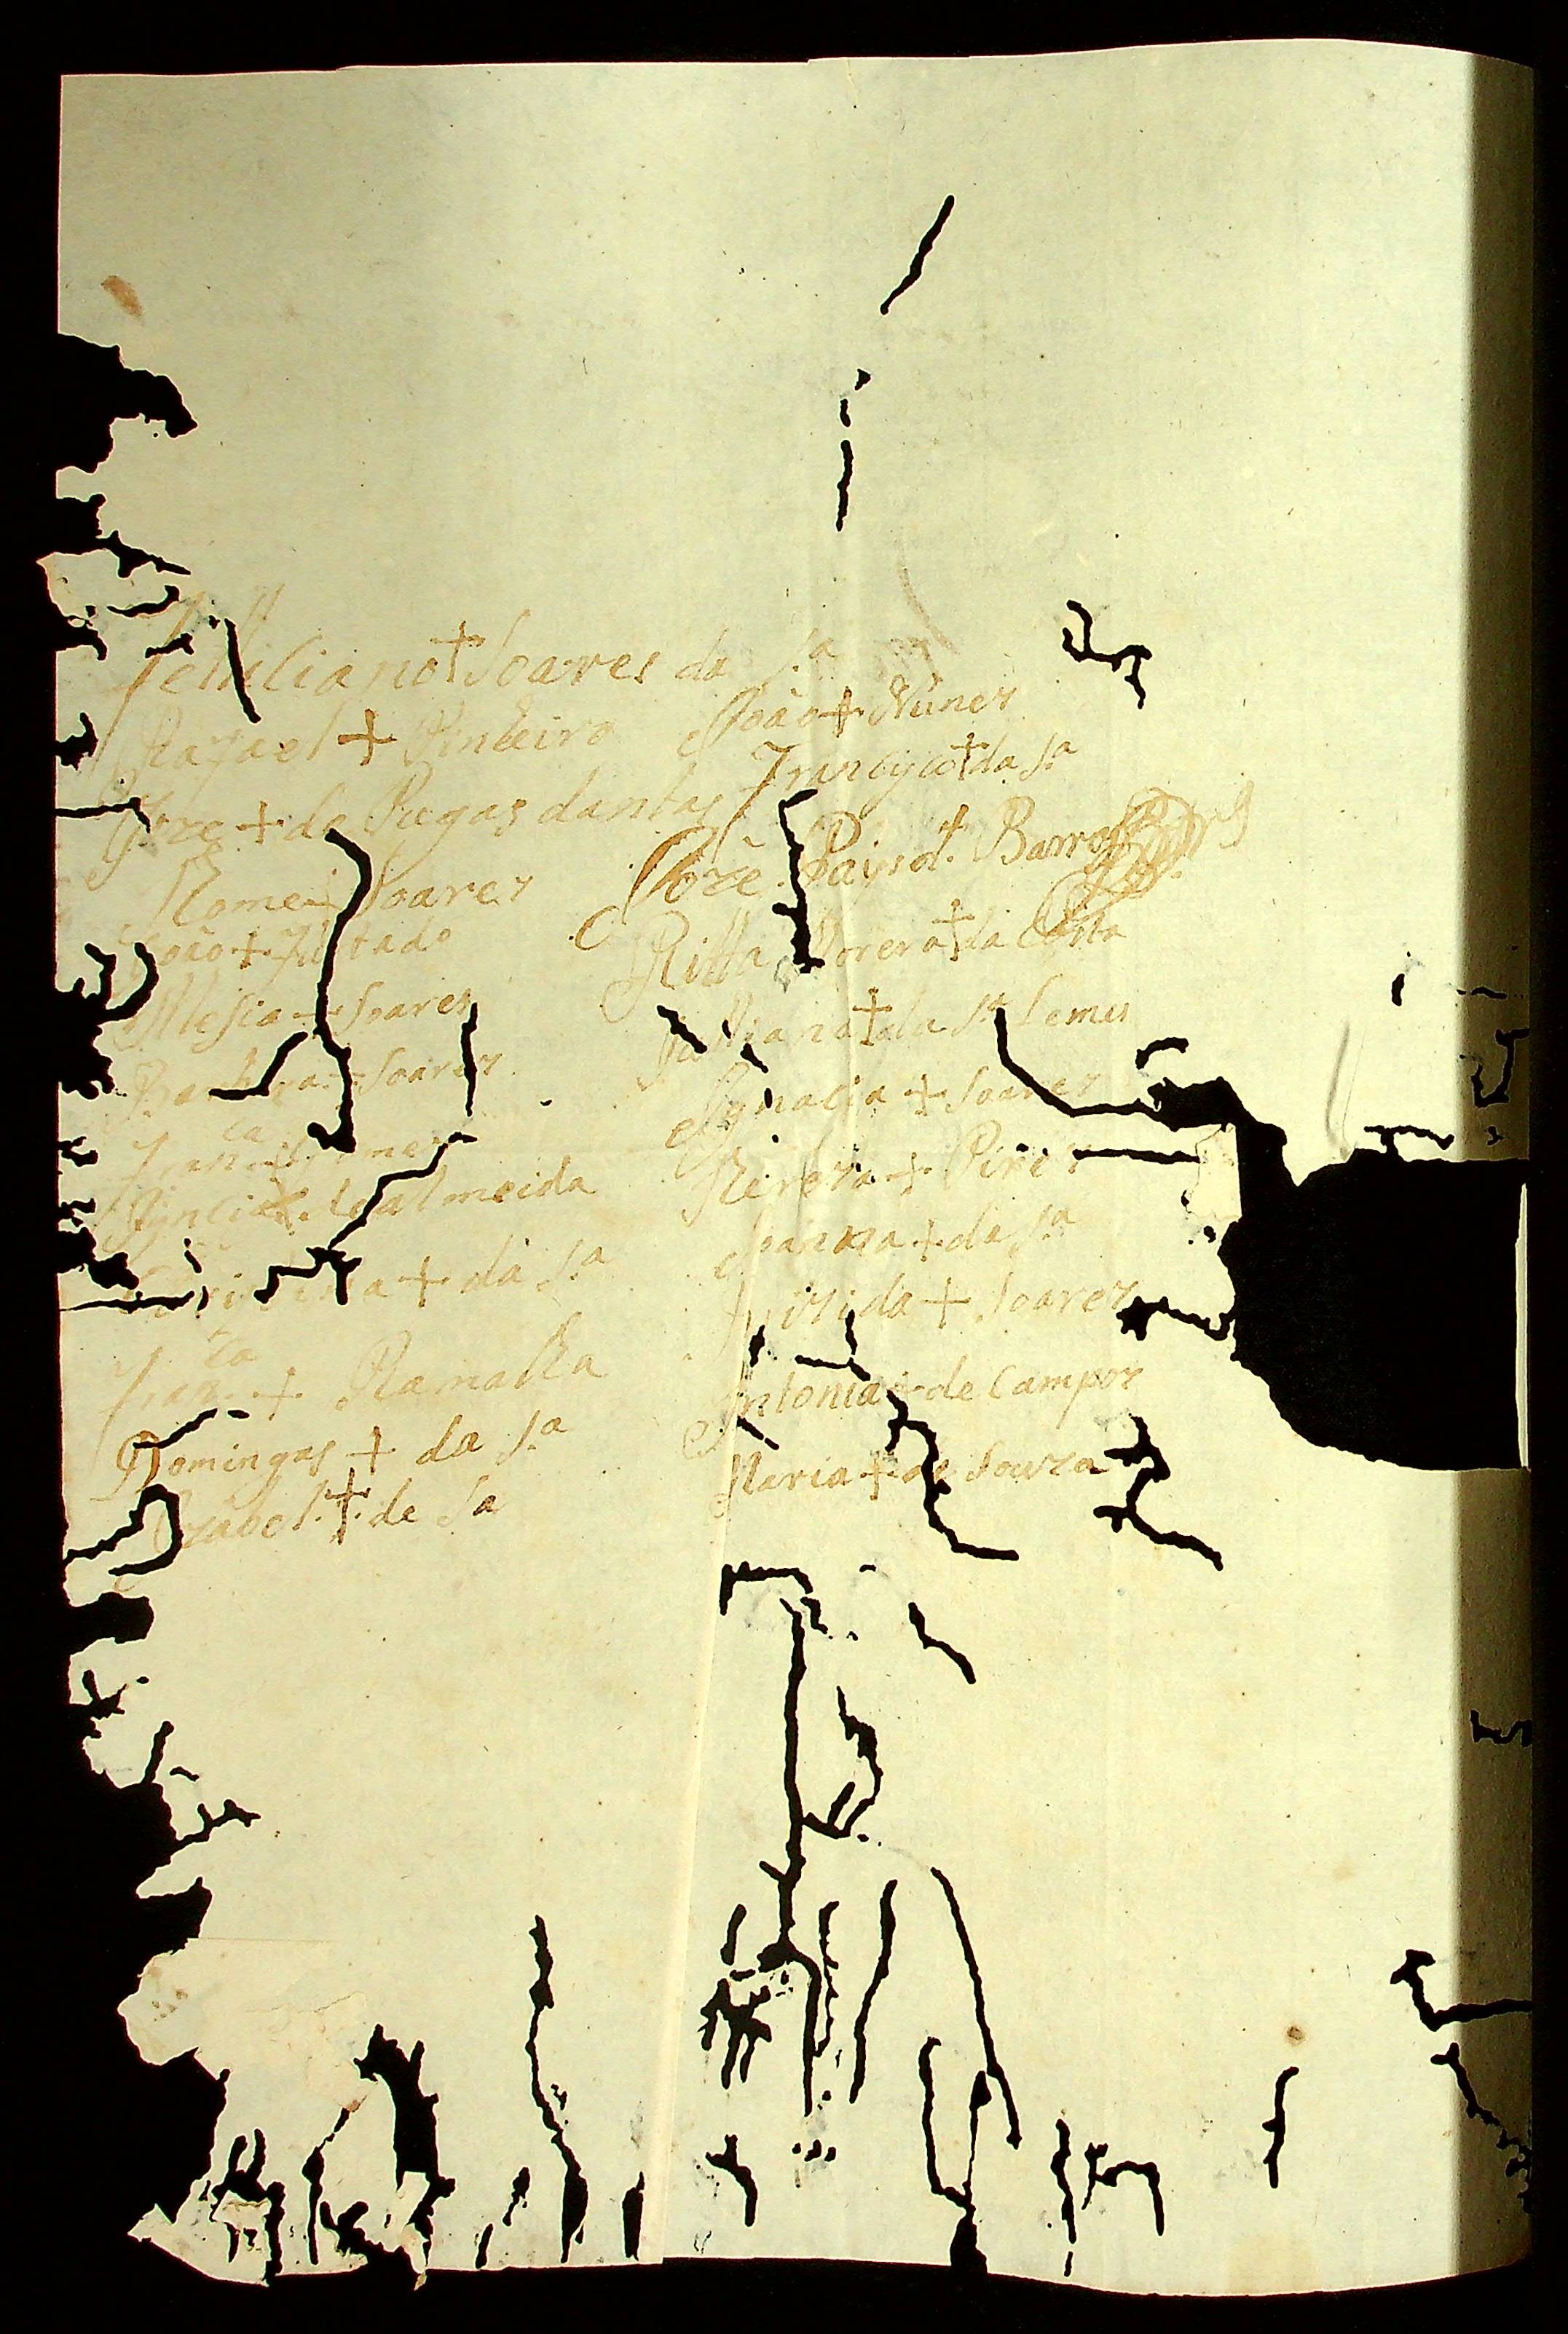 Femiliano + Soares da S.ª
Rafael + Pinheiro
Joze + de Puegas dantas
Rome + Soares
João + Furtado
Mesia + Soares
Barbara + Soares
Fran.ca +
+ de almeida
+ da S.ª
Fran.ca + Ramalha
Domingas + da S.ª
Izabel + de Sa
João + Nunes
Francysco + da S.ª
Joze Pays d. Barros
Ritta Morera + da Costa
+ da S.ª Lemes
Ignacia + Soares
Tereza + Pires
Joanna + da S.ª
+ Soares
Antonia + de Campos
Maria + de Souza